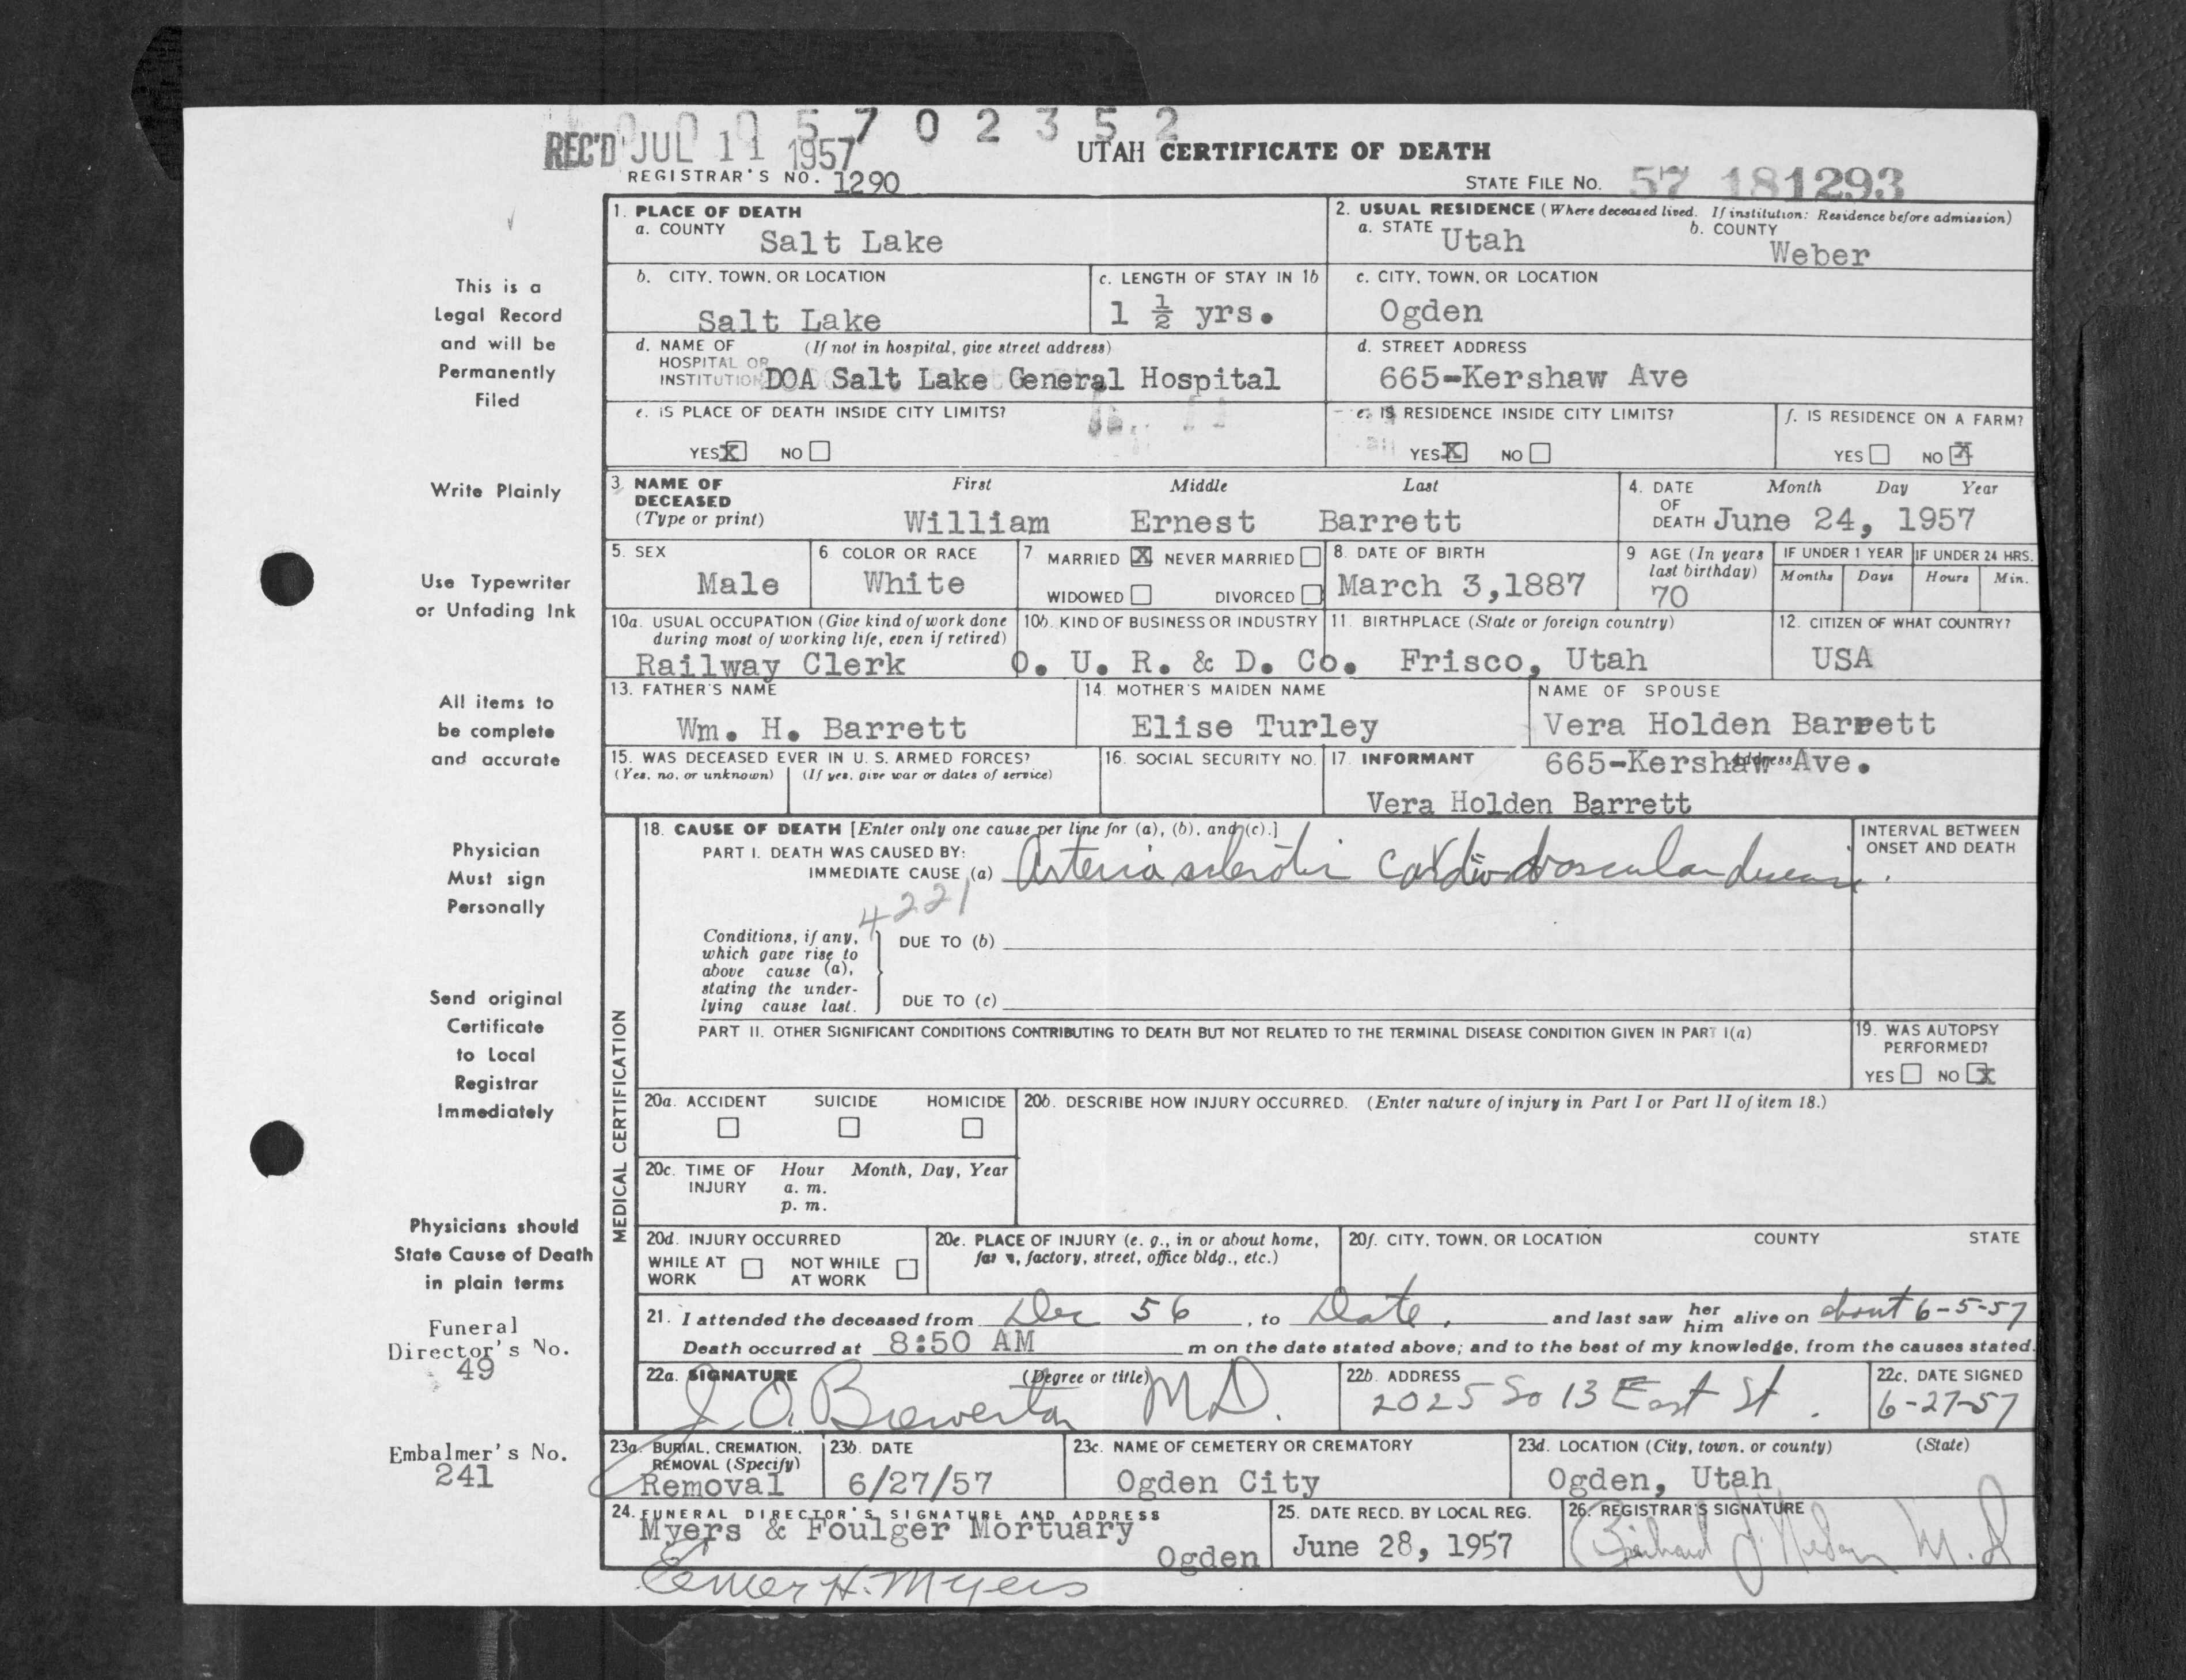 0 0 0 5 7 0 2 3 5 2
REC'D JUL 11 1957
UTAH CERTIFICATE OF DEATH
REGISTRAR'S NO. 1290
STATE FILE NO. 57 181293
1. PLACE OF DEATH
a. COUNTY Salt Lake
2. USUAL RESIDENCE (Where deceased lived. If institution: Residence before admission)
a. STATE Utah b. COUNTY Weber
b. CITY, TOWN, OR LOCATION Salt Lake
c. LENGTH OF STAY IN 1b 1 ½ yrs.
c. CITY, TOWN, OR LOCATION Ogden
d. NAME OF HOSPITAL OR INSTITUTION (If not in hospital, give street address)
DOA Salt Lake General Hospital
d. STREET ADDRESS
665-Kershaw Ave
e. IS PLACE OF DEATH INSIDE CITY LIMITS?
YES X NO
e. IS RESIDENCE INSIDE CITY LIMITS?
YES X NO
f. IS RESIDENCE ON A FARM?
YES NO X
3. NAME OF DECEASED (Type or print)
First Middle Last
William Ernest Barrett
4. DATE OF DEATH Month Day Year
June 24, 1957
5. SEX Male
6 COLOR OR RACE White
7 MARRIED X NEVER MARRIED
WIDOWED DIVORCED
8. DATE OF BIRTH March 3,1887
9 AGE (In years last birthday) 70
IF UNDER 1 YEAR Months Days
IF UNDER 24 HRS. Hours Min.
10a. USUAL OCCUPATION (Give kind of work done during most of working life, even if retired)
Railway Clerk
10b. KIND OF BUSINESS OR INDUSTRY
O. U. R. & D. Co.
11. BIRTHPLACE (State or foreign country)
Frisco, Utah
12. CITIZEN OF WHAT COUNTRY?
USA
13. FATHER'S NAME
Wm. H. Barrett
14. MOTHER'S MAIDEN NAME
Elise Turley
NAME OF SPOUSE
Vera Holden Barrett
15. WAS DECEASED EVER IN U. S. ARMED FORCES?
(Yes, no, or unknown) (If yes, give war or dates of service)
16. SOCIAL SECURITY NO.
17. INFORMANT Address
665-Kershaw Ave.
Vera Holden Barrett
MEDICAL CERTIFICATION
18. CAUSE OF DEATH [Enter only one cause per line for (a), (b), and (c).]
PART I. DEATH WAS CAUSED BY:
IMMEDIATE CAUSE (a) Arteriosclerotic cardiovascular disease.
INTERVAL BETWEEN ONSET AND DEATH
4221
Conditions, if any, which gave rise to above cause (a), stating the underlying cause last.
DUE TO (b)
DUE TO (c)
PART II. OTHER SIGNIFICANT CONDITIONS CONTRIBUTING TO DEATH BUT NOT RELATED TO THE TERMINAL DISEASE CONDITION GIVEN IN PART I(a)
19. WAS AUTOPSY PERFORMED?
YES NO X
20a. ACCIDENT SUICIDE HOMICIDE
20b. DESCRIBE HOW INJURY OCCURRED. (Enter nature of injury in Part I or Part II of item 18.)
20c. TIME OF INJURY Hour Month, Day, Year
a. m.
p. m.
20d. INJURY OCCURRED
WHILE AT WORK NOT WHILE AT WORK
20e. PLACE OF INJURY (e. g., in or about home, farm, factory, street, office bldg., etc.)
20f. CITY, TOWN, OR LOCATION COUNTY STATE
21. I attended the deceased from Dec 56, to Date, and last saw her him alive on about 6-5-57
Death occurred at 8:50 AM m on the date stated above; and to the best of my knowledge, from the causes stated.
22a. SIGNATURE (Degree or title)
J. O. Brewerton MD.
22b. ADDRESS
2025 So 13 East St.
22c. DATE SIGNED
6-27-57
23a. BURIAL, CREMATION, REMOVAL (Specify)
Removal
23b. DATE
6/27/57
23c. NAME OF CEMETERY OR CREMATORY
Ogden City
23d. LOCATION (City, town, or county) (State)
Ogden, Utah
24. FUNERAL DIRECTOR'S SIGNATURE AND ADDRESS
Myers & Foulger Mortuary
Ogden
Elmer H. Myers
25. DATE RECD. BY LOCAL REG.
June 28, 1957
26. REGISTRAR'S SIGNATURE
M.D
This is a
Legal Record
and will be
Permanently
Filed
Write Plainly
Use Typewriter
or Unfading Ink
All items to
be complete
and accurate
Physician
Must sign
Personally
Send original
Certificate
to Local
Registrar
Immediately
Physicians should
State Cause of Death
in plain terms
Funeral
Director's No.
49
Embalmer's No.
241